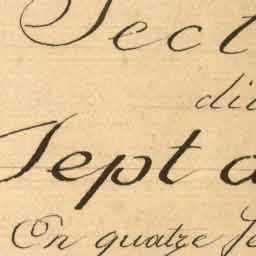 Sect
di
Sept a
En quatre Se